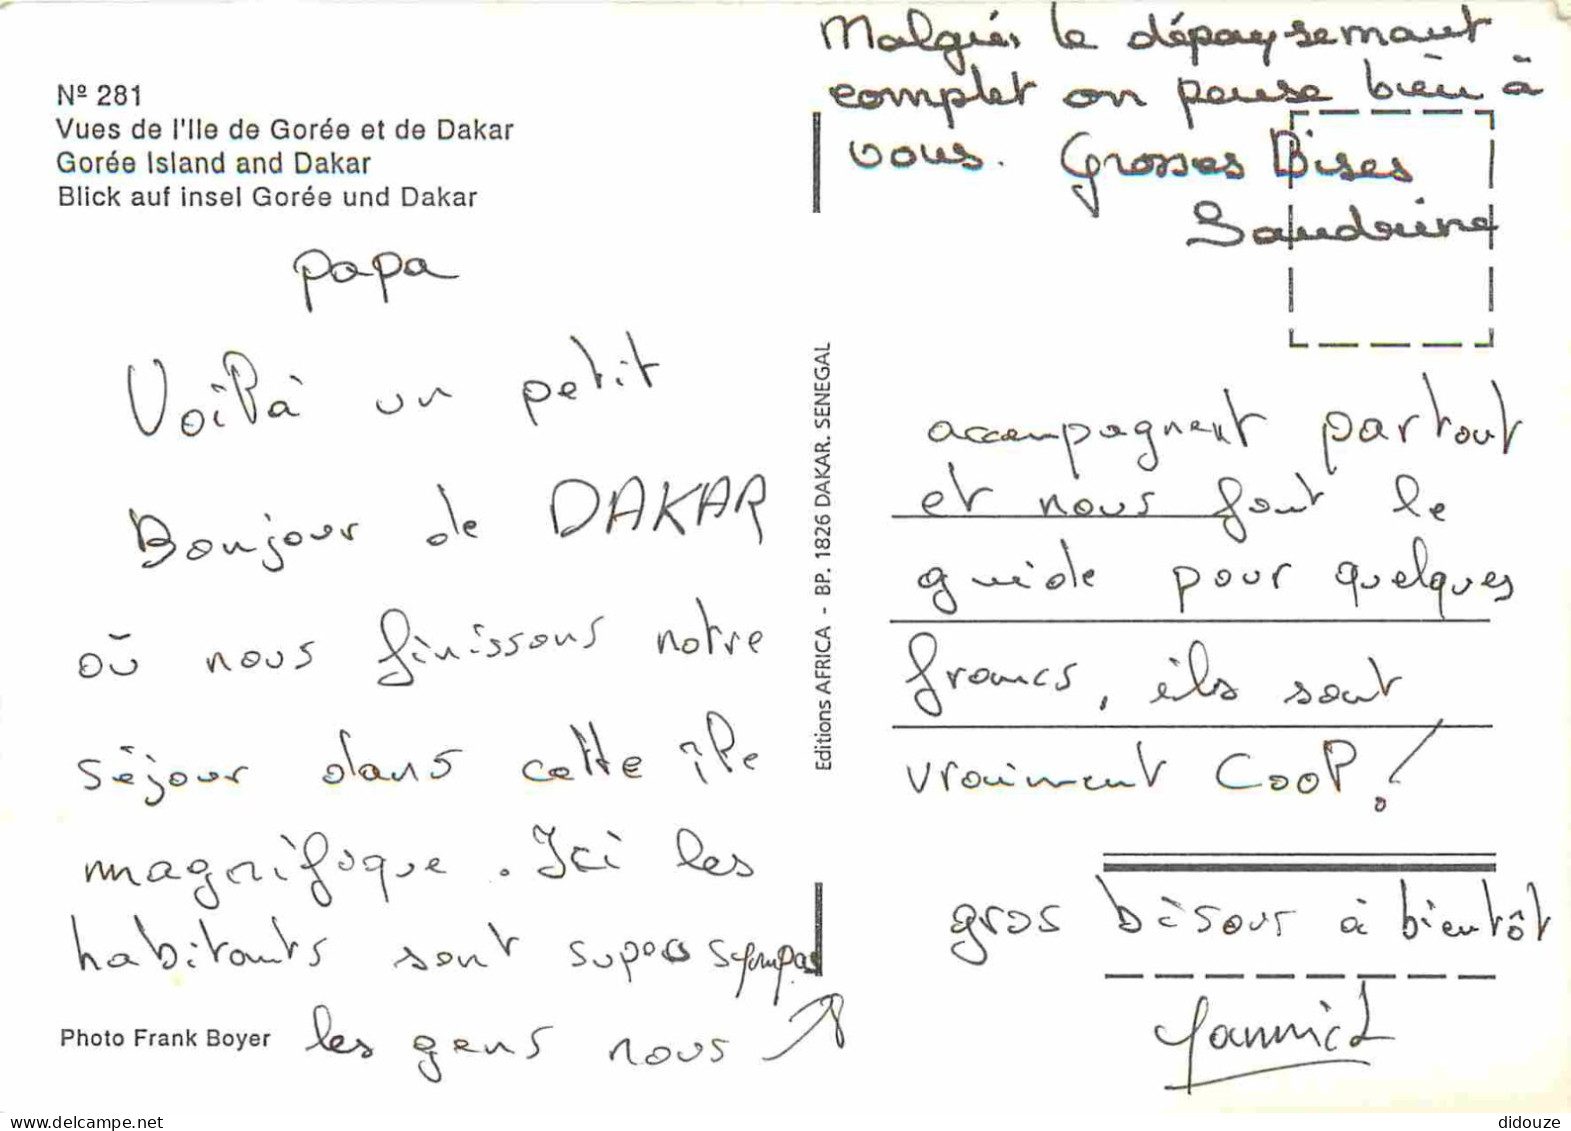 Nº 281
Vues de l'Ile de Gorée et de Dakar
Gorée Island and Dakar
Blick auf insel Gorée und Dakar
papa
Voilà un petit
Bonjour de DAKAR
où nous finissons notre
séjour dans cette île
magnifique. Ici les
habitants sont supers sympas
les gens nous
Photo Frank Boyer
Editions AFRICA - BP. 1826 DAKAR. SENEGAL
accompagnent partout
et nous font le
guide pour quelques
francs, ils sont
vraiment COOP!
gros bisous à bientôt
Yannick
Malgrés le dépaysemant
complet on pense bien à
vous. Grosses Bises
Sandrine
didouze